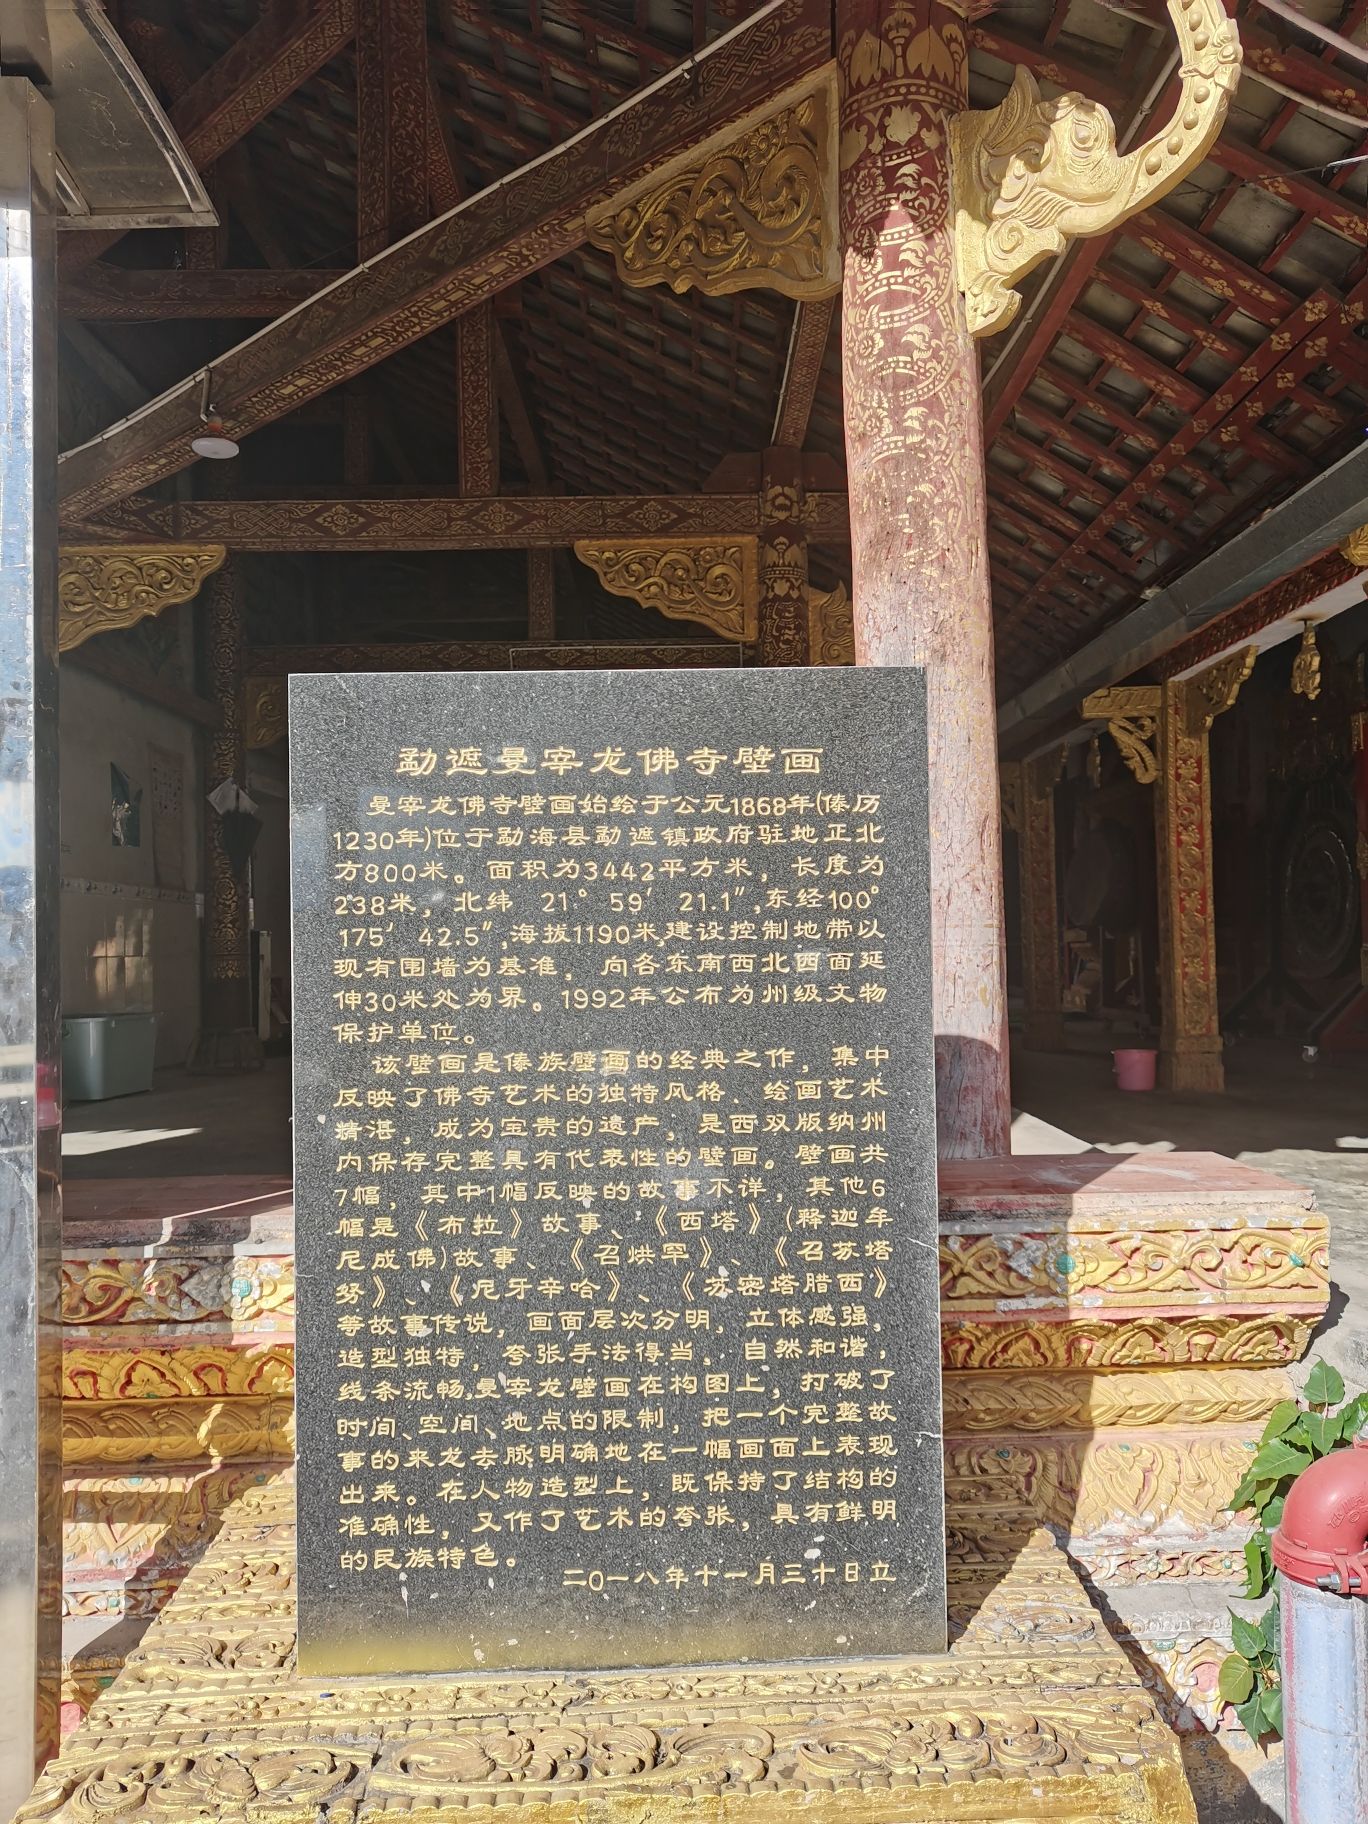 勐遮曼宰龙佛寺壁画
曼宰龙佛寺壁画始绘于公元1868年(傣历
1230年)位于勐海县勐遮镇政府驻地正北
方800米。面积为3442平方米，长度为
238米，北纬 21° 59′ 21.1″,东经100°
175′ 42.5″,海拔1190米,建设控制地带以
现有围墙为基准，向各东南西北四面延
伸30米处为界。1992年公布为州级文物
保护单位。
该壁画是傣族壁画的经典之作，集中
反映了佛寺艺术的独特风格、绘画艺术
精湛，成为宝贵的遗产，是西双版纳州
内保存完整具有代表性的壁画。壁画共
7幅，其中1幅反映的故事不详，其他6
幅是《布拉》故事、《西塔》(释迦牟
尼成佛)故事、《召烘罕》、《召苏塔
努》、《尼牙辛哈》、《苏密塔腊西》
等故事传说，画面层次分明，立体感强，
造型独特，夸张手法得当，自然和谐，
线条流畅,曼宰龙壁画在构图上，打破了
时间、空间、地点的限制，把一个完整故
事的来龙去脉明确地在一幅画面上表现
出来。在人物造型上，既保持了结构的
准确性，又作了艺术的夸张，具有鲜明
的民族特色。
二〇一八年十一月三十日立